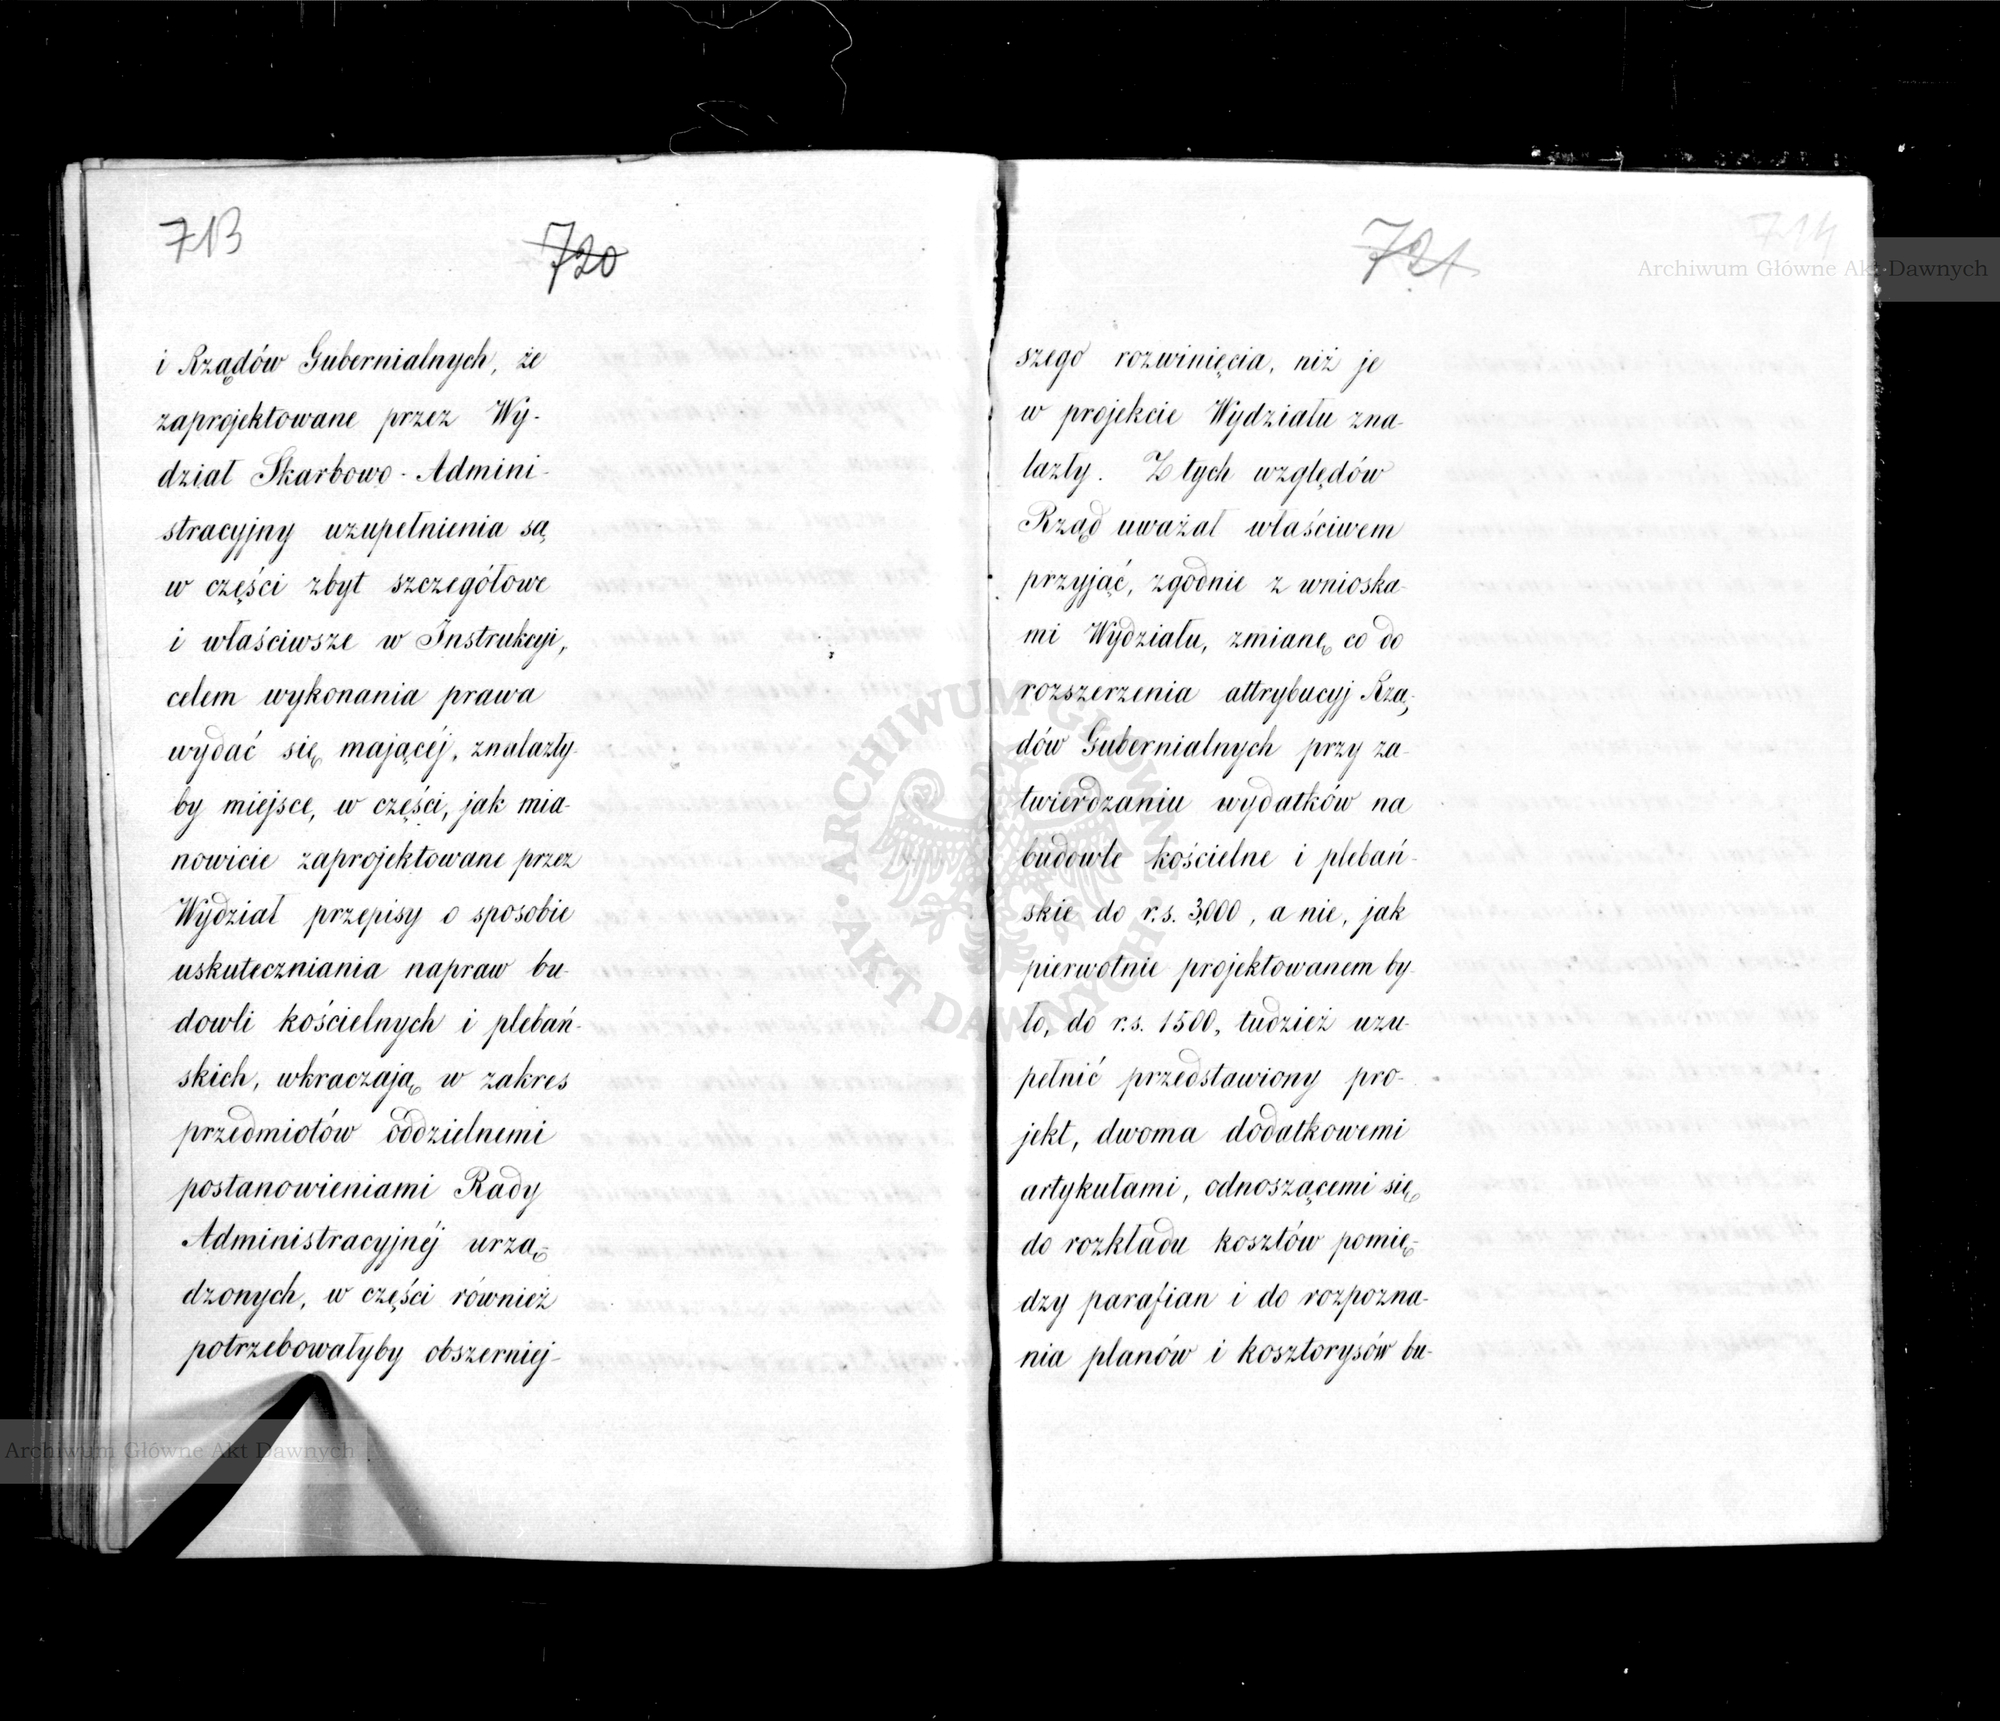 713
720
i Rządów Gubernialnych, że
zaprojektowane przez Wy-
dział Skarbowo-Admini-
stracyjny uzupełnienia są
w części zbyt szczegółowe
i właściwsze w Instrukcyi,
celem wykonania prawa
wydać się mającéj, znalazły-
by miejsce, w części, jak mia-
nowicie zaprojektowane przez
Wydział przepisy o sposobie
uskuteczniania napraw bu-
dowli kościelnych i plebań-
skich, wkraczają w zakres
przedmiotów oddzielnemi
postanowieniami Rady
Administracyjnéj urzą-
dzonych, w części również
potrzebowałyby obszerniej-
721
714
szego rozwinięcia, niż je
w projekcie Wydziału zna-
lazły. Z tych względów
Rząd uważał właściwem
przyjąć, zgodnie z wnioska-
mi Wydziału, zmianę co do
rozszerzenia attrybucyj Rzą-
dów Gubernialnych przy za-
twierdzaniu wydatków na
budowle kościelne i plebań-
skie do r.s. 3,000, a nie, jak
pierwotnie projektowanem by-
ło, do r.s. 1500, tudzież uzu-
pełnić przedstawiony pro-
jekt, dwoma dodatkowemi
artykułami, odnoszącemi się
do rozkładu kosztów pomię-
dzy parafian i do rozpozna-
nia planów i kosztorysów bu-
Archiwum Główne Akt Dawnych
ARCHIWUM GŁÓWNE
AKT DAWNYCH
Archiwum Główne Akt Dawnych